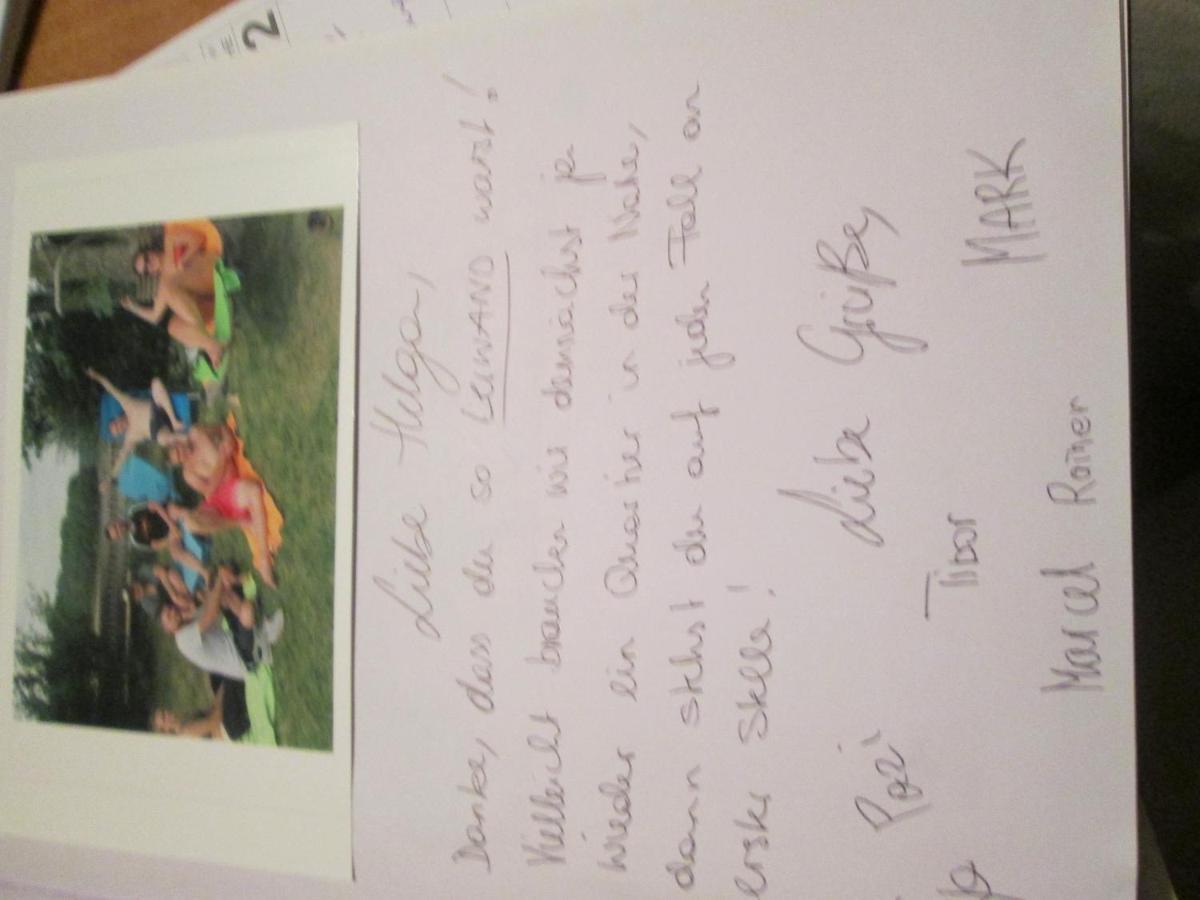 Liebe Helga,
Danke, dass du so LEIWAND warst!
Vielleicht brauchen wir demnächst ja
wieder ein Quartier in der Nähe,
dann stehst du auf jeden Fall an
erster Stelle!
Liebe Grüße,
Pezi
Tibor
MARK
Marcel Romer
2